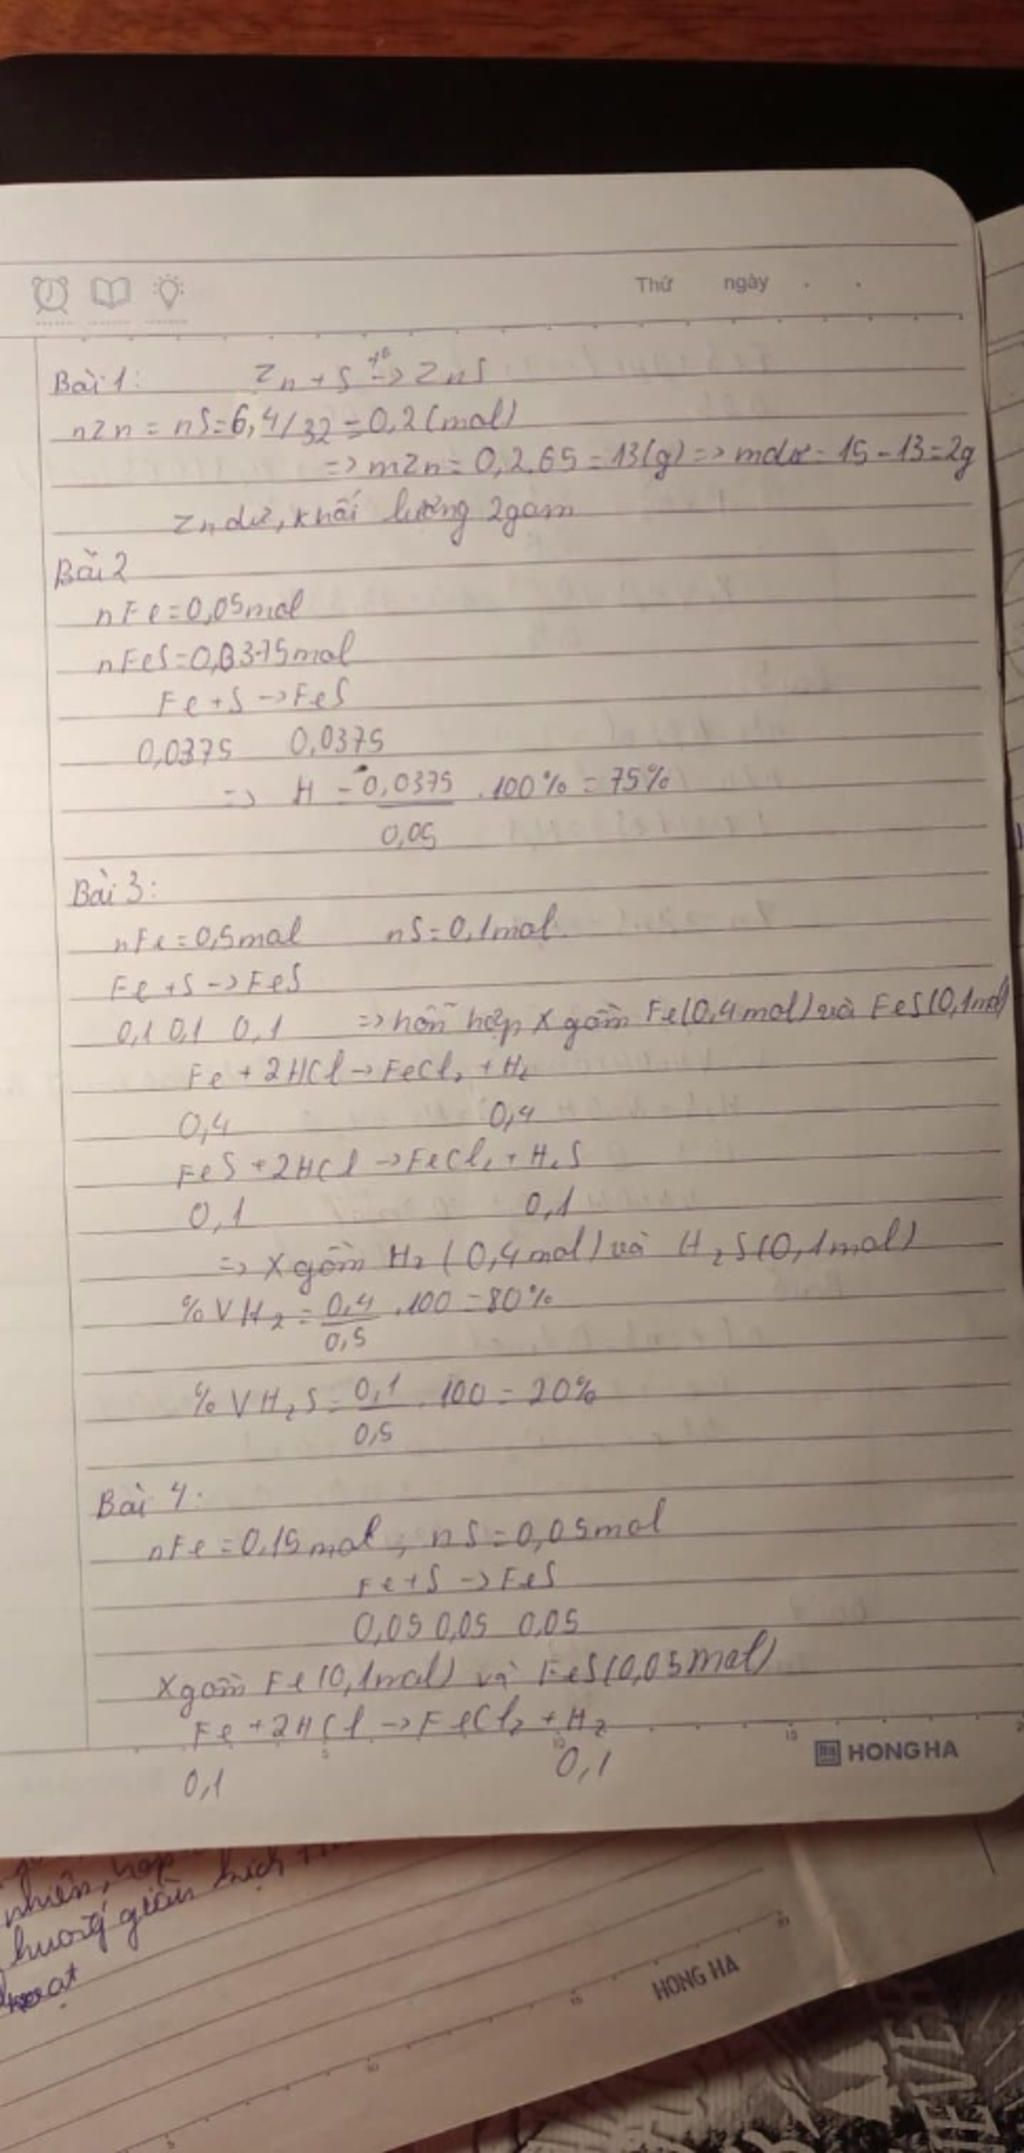 Thứ ngày
Bài 1: Zn + S t° -> ZnS
nZn = nS = 6,4/32 = 0,2 (mol)
=> mZn = 0,2.65 = 13(g) => mdư = 15 - 13 = 2g
Zn dư, khối lượng 2gam
Bài 2
nFe = 0,05mol
nFeS = 0,0375mol
Fe + S -> FeS
0,0375 0,0375
=> H = 0,0375 .100% = 75%
0,05
Bài 3:
nFe = 0,5mol nS = 0,1mol
Fe + S -> FeS
0,1 0,1 0,1 => hỗn hợp X gồm Fe(0,4mol) và FeS(0,1mol)
Fe + 2HCl -> FeCl2 + H2
0,4 0,4
FeS + 2HCl -> FeCl2 + H2S
0,1 0,1
=> X gồm H2 (0,4mol) và H2S(0,1mol)
%VH2 = 0,4 .100 = 80%
0,5
%VH2S = 0,1 .100 = 20%
0,5
Bài 4:
nFe = 0,15mol; nS = 0,05mol
Fe + S -> FeS
0,05 0,05 0,05
X gồm Fe(0,1mol) và FeS(0,05mol)
Fe + 2HCl -> FeCl2 + H2
5 10 15
HONG HA
0,1 0,1
nhiên, hợp
hướng giản
HONG HA